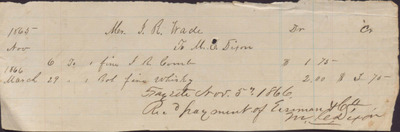 1865 Mrs. J. R. Wade Dr Cr
Nov To M. C. Dixon
6 To fine J R Comb $ 1.75
1866
March 29 " Bot fine Whisky 2.00 $ 3.75
Fayette Nov. 5th 1866
Rec'd payment of Erriman & Co
M. C. Dixon